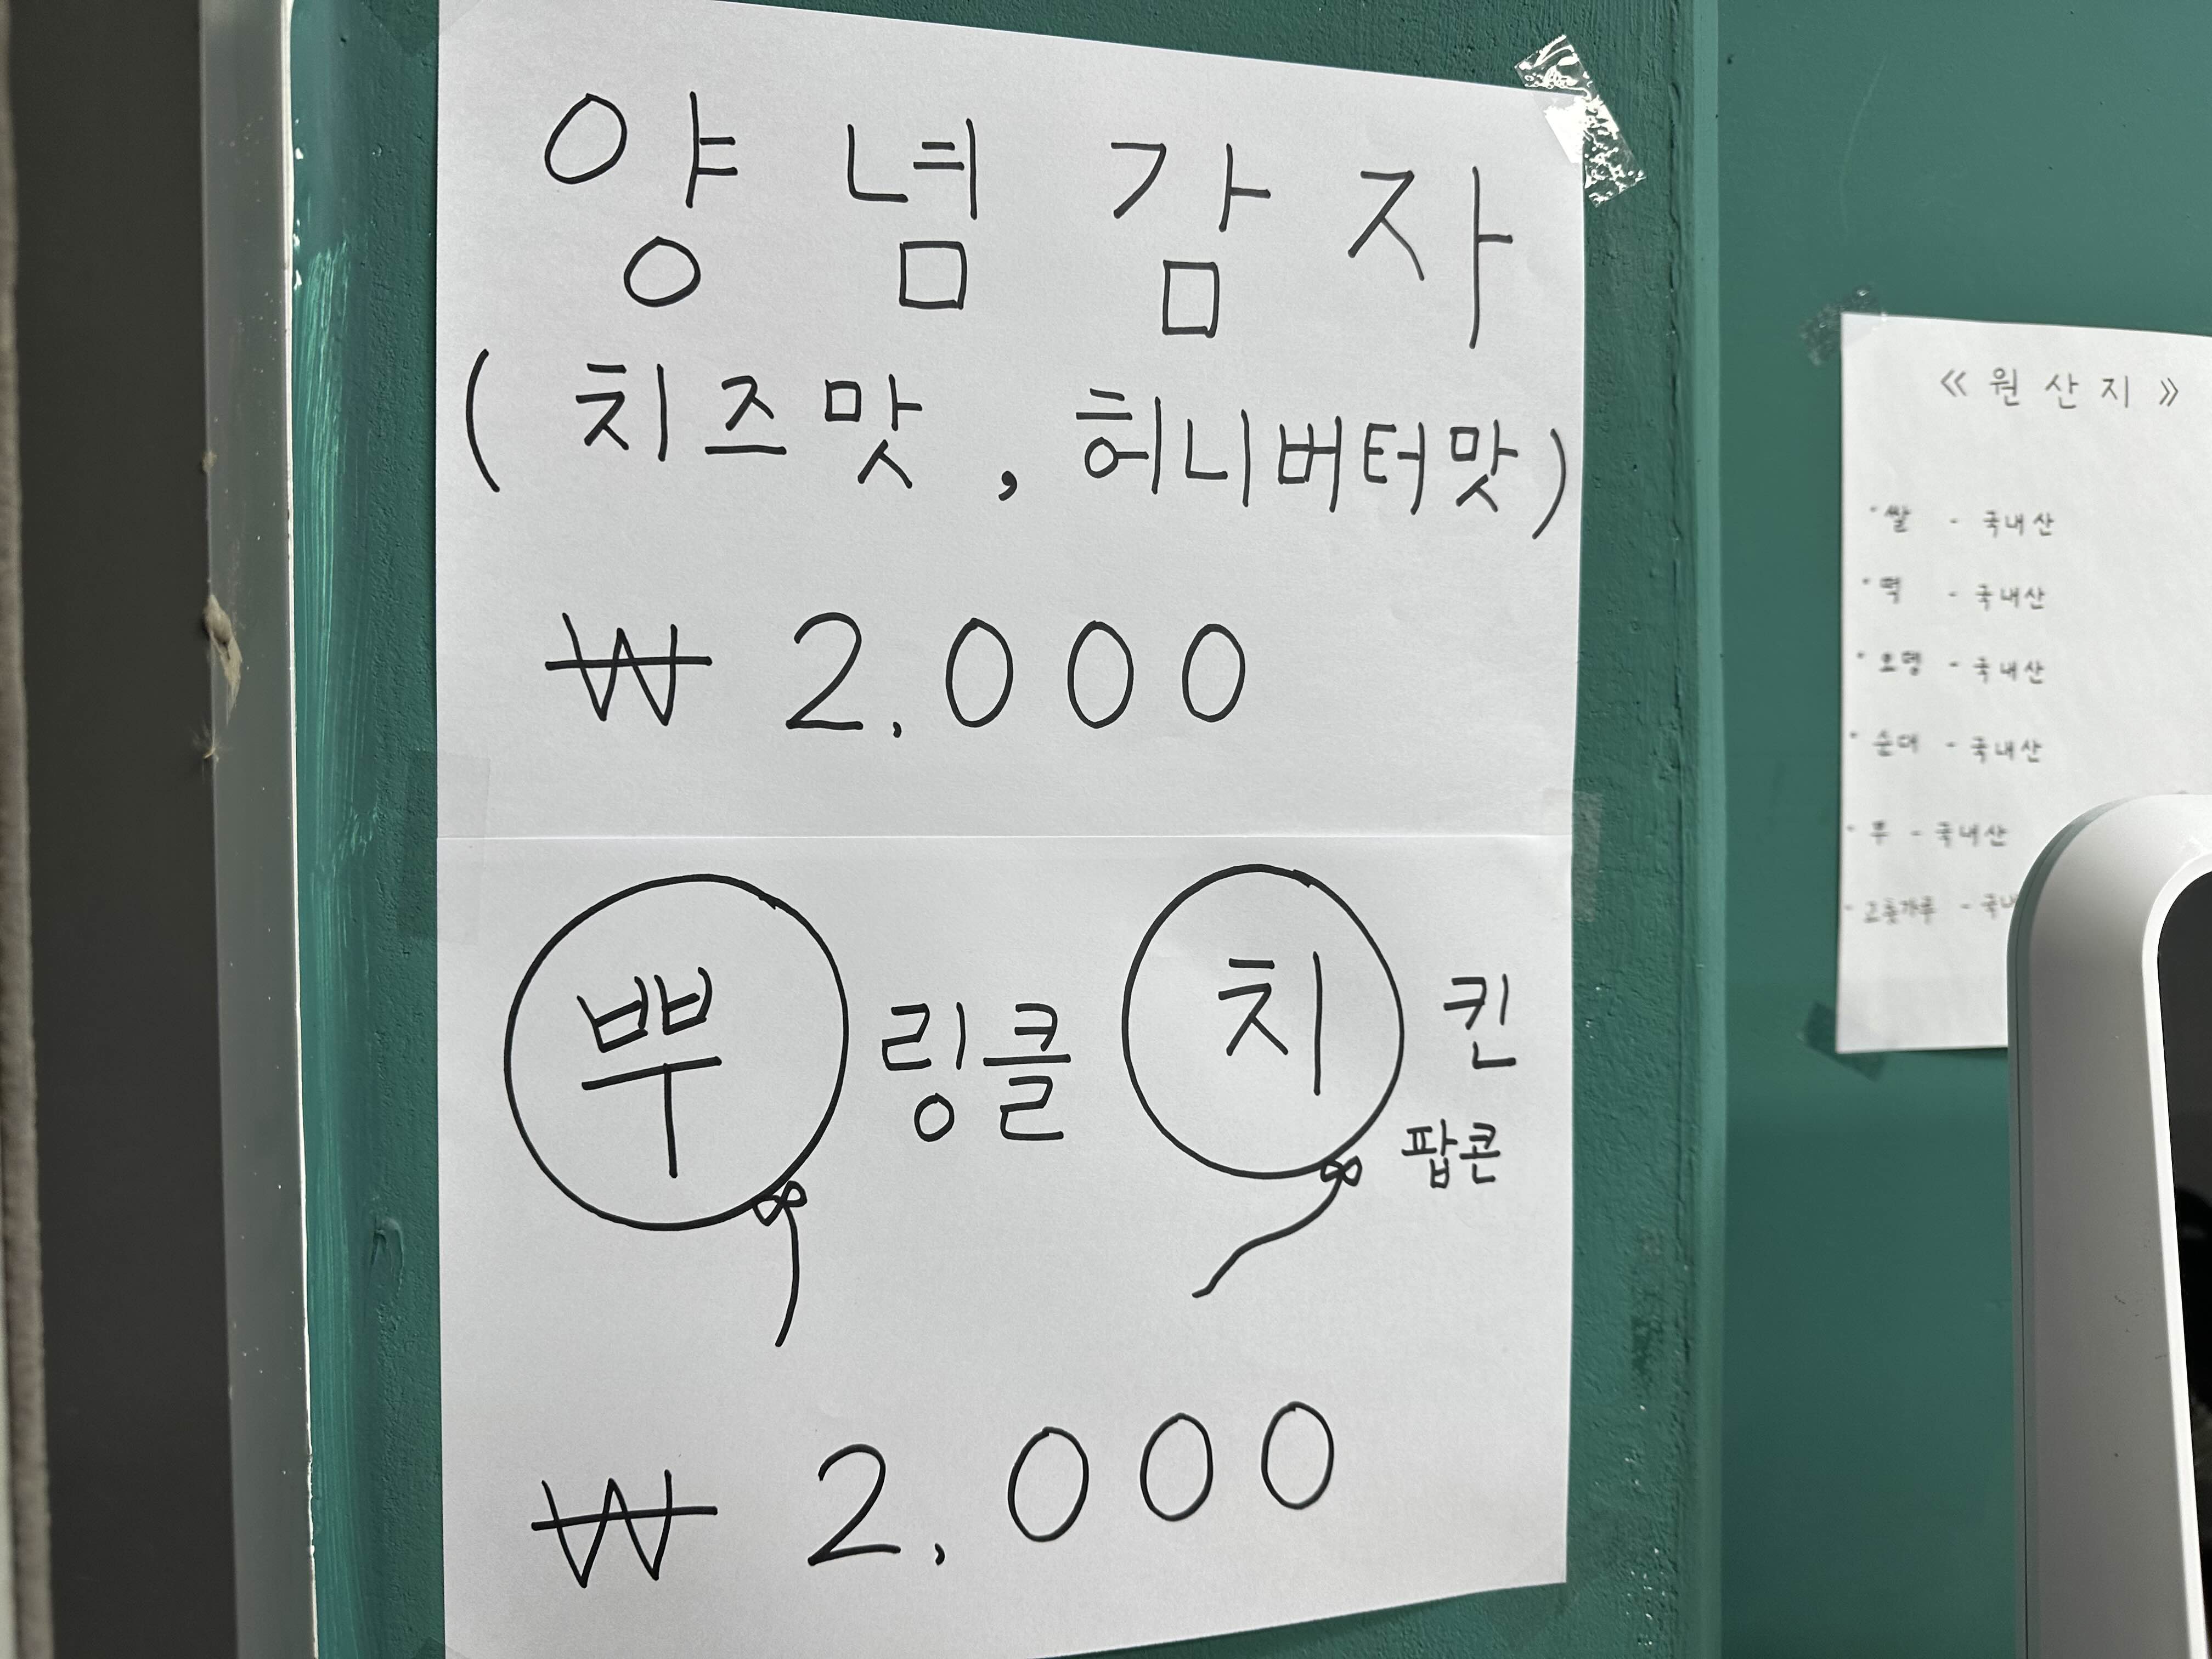 양념감자
(치즈맛, 허니버터맛)
₩ 2.000
뿌링클 치킨
팝콘
₩ 2,000
《원산지》
· 쌀 - 국내산
· 떡 - 국내산
· 오뎅 - 국내산
· 순대 - 국내산
- 무 - 국내산
- 고춧가루 - 국내